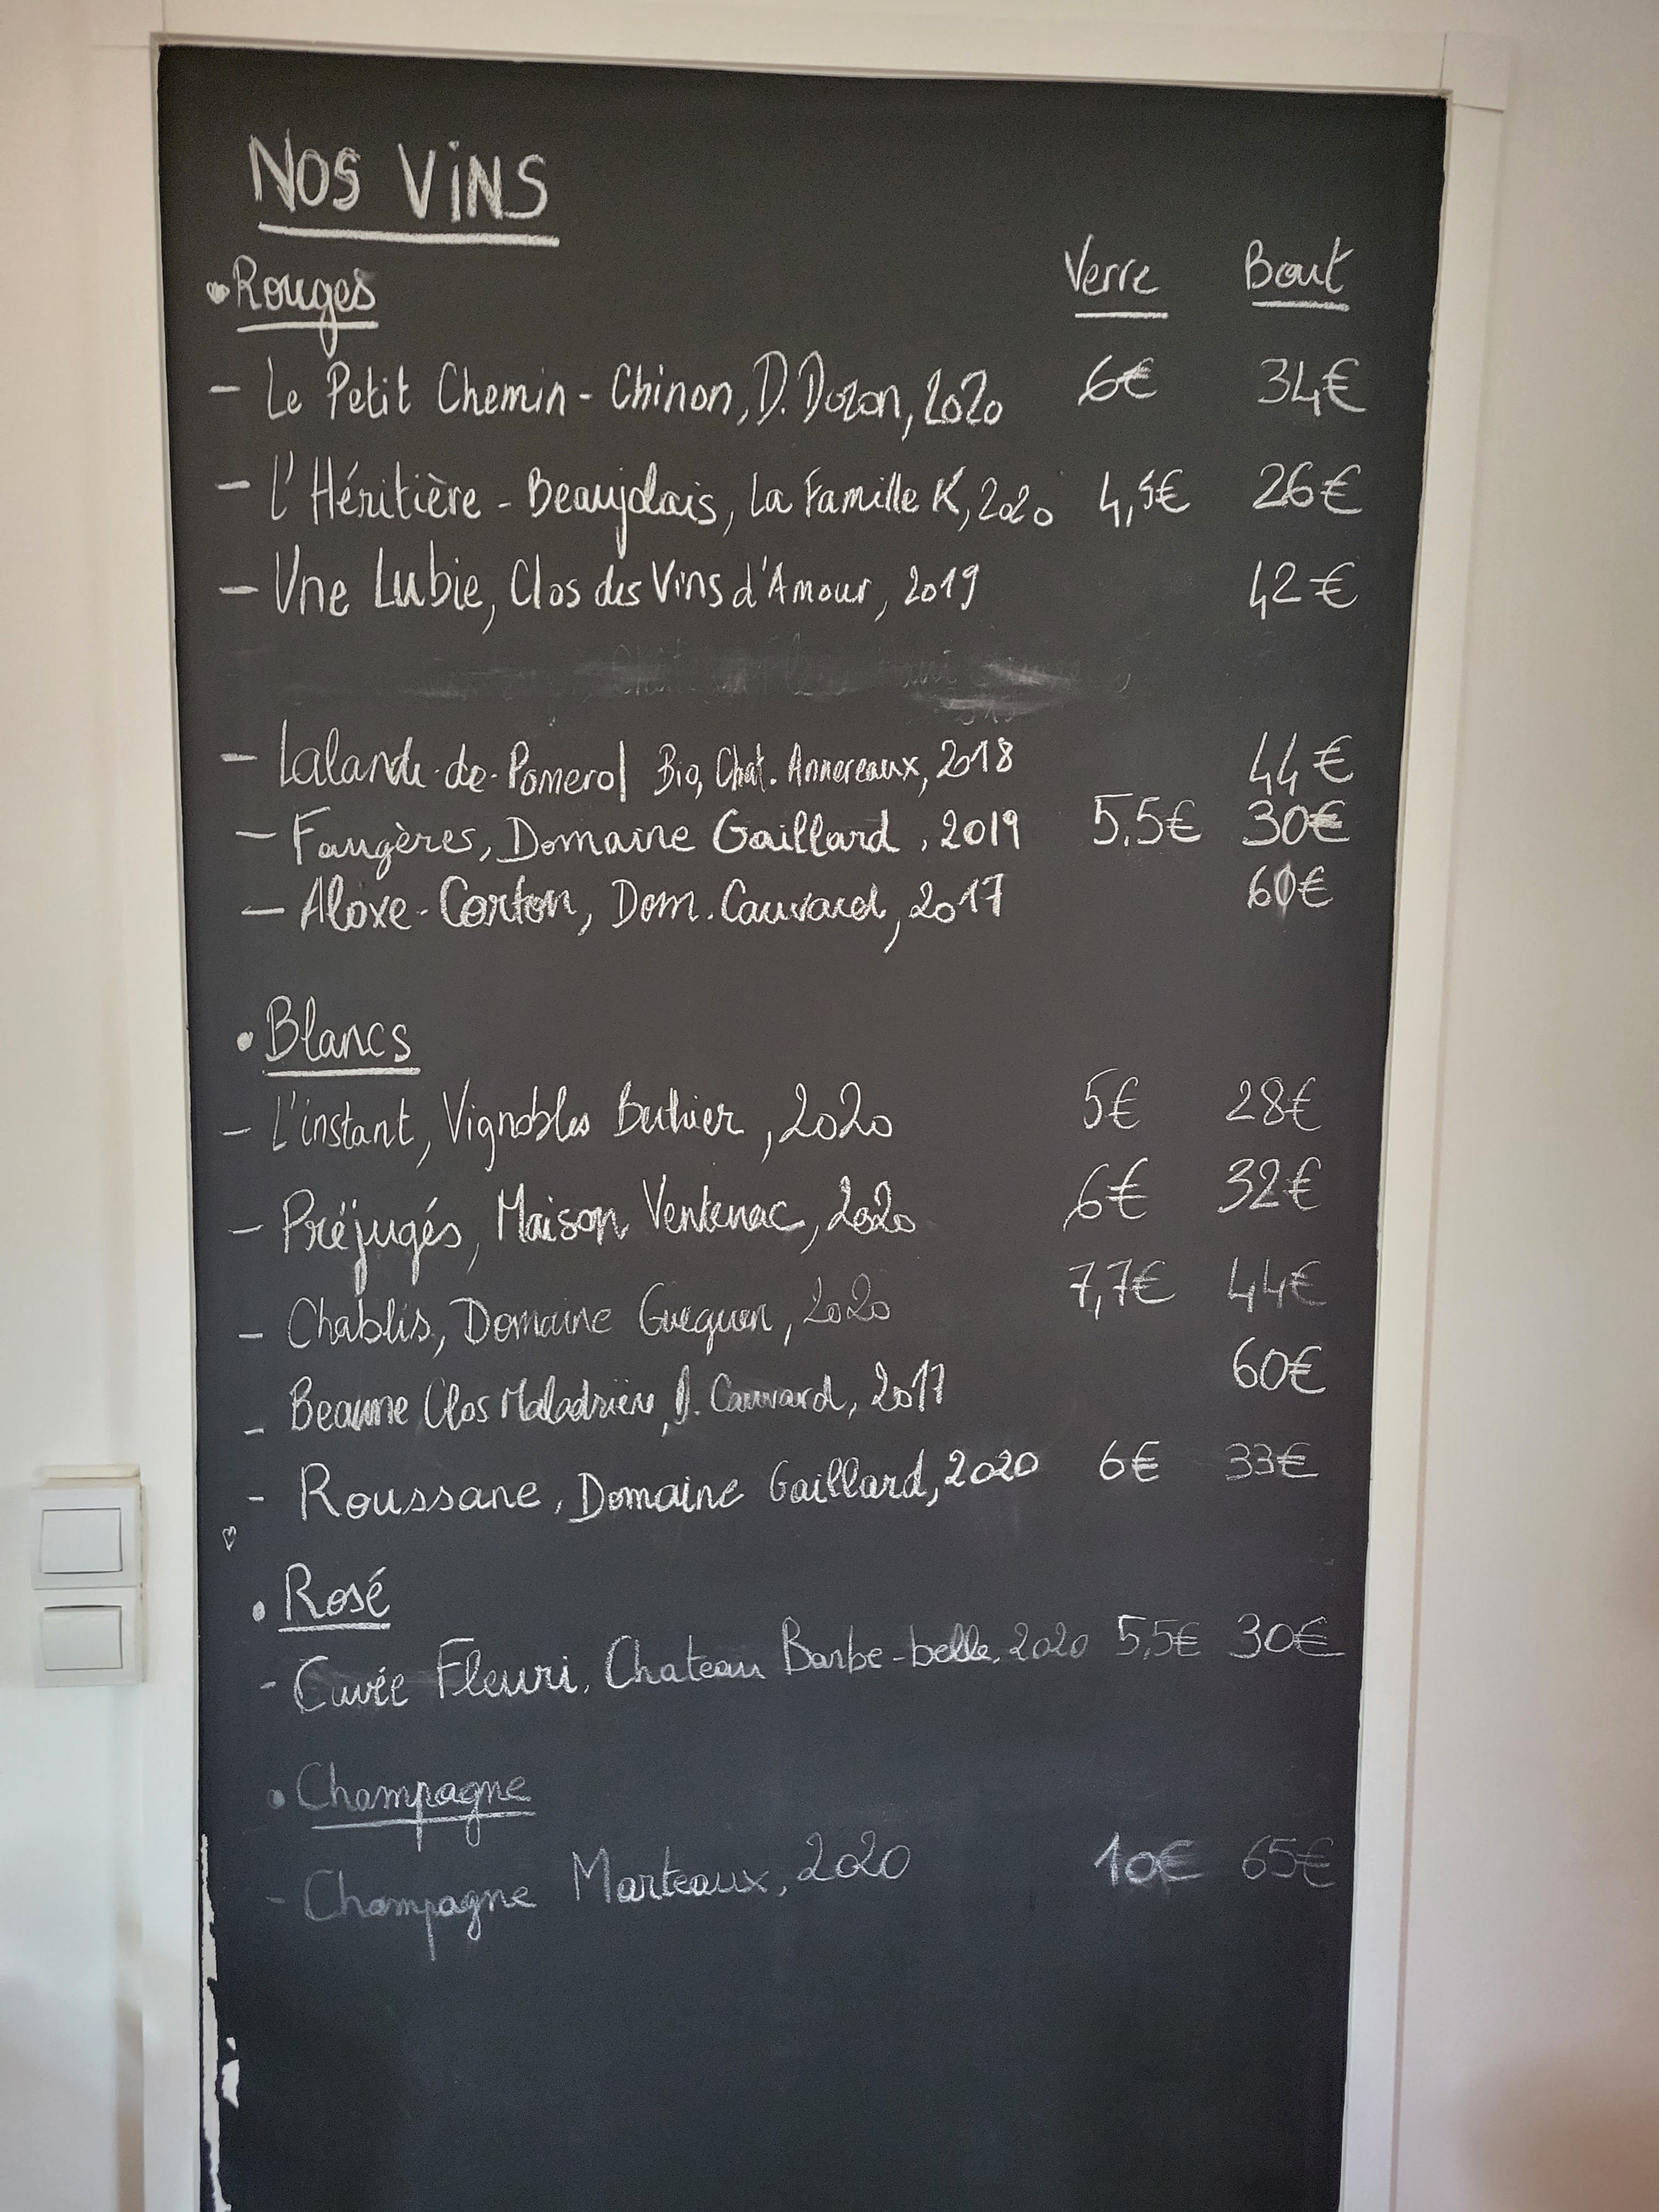 NOS ViNS
Verre Bout
• Rouges
- Le Petit Chemin - Chinon, D. Dozon, 2020 6€ 34€
- L'Héritière - Beaujolais, La Famille K, 2020 4,5€ 26€
- Une Lubie, Clos des Vins d'Amour, 2019 42€
- Lalande-de-Pomerol Bio, Chat. Annereaux, 2018 44€
- Faugères, Domaine Gaillard, 2019 5,5€ 30€
- Aloxe-Corton, Dom. Cauvard, 2017 60€
• Blancs
- L'instant, Vignobles Buthier, 2020 5€ 28€
- Préjugés, Maison Ventenac, 2020 6€ 32€
- Chablis, Domaine Gueguen, 2020 7,7€ 44€
- Beaune Clos Maladrière, D. Cauvard, 2017 60€
- Roussane, Domaine Gaillard, 2020 6€ 33€
• Rosé
- Cuvée Fleuri, Chateau Barbe-belle, 2020 5,5€ 30€
• Champagne
- Champagne Marteaux, 2020 10€ 65€